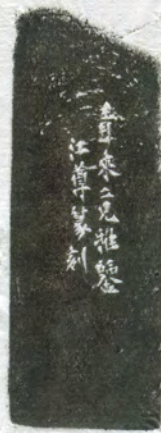 來二兄雅鑒
江尊篆刻